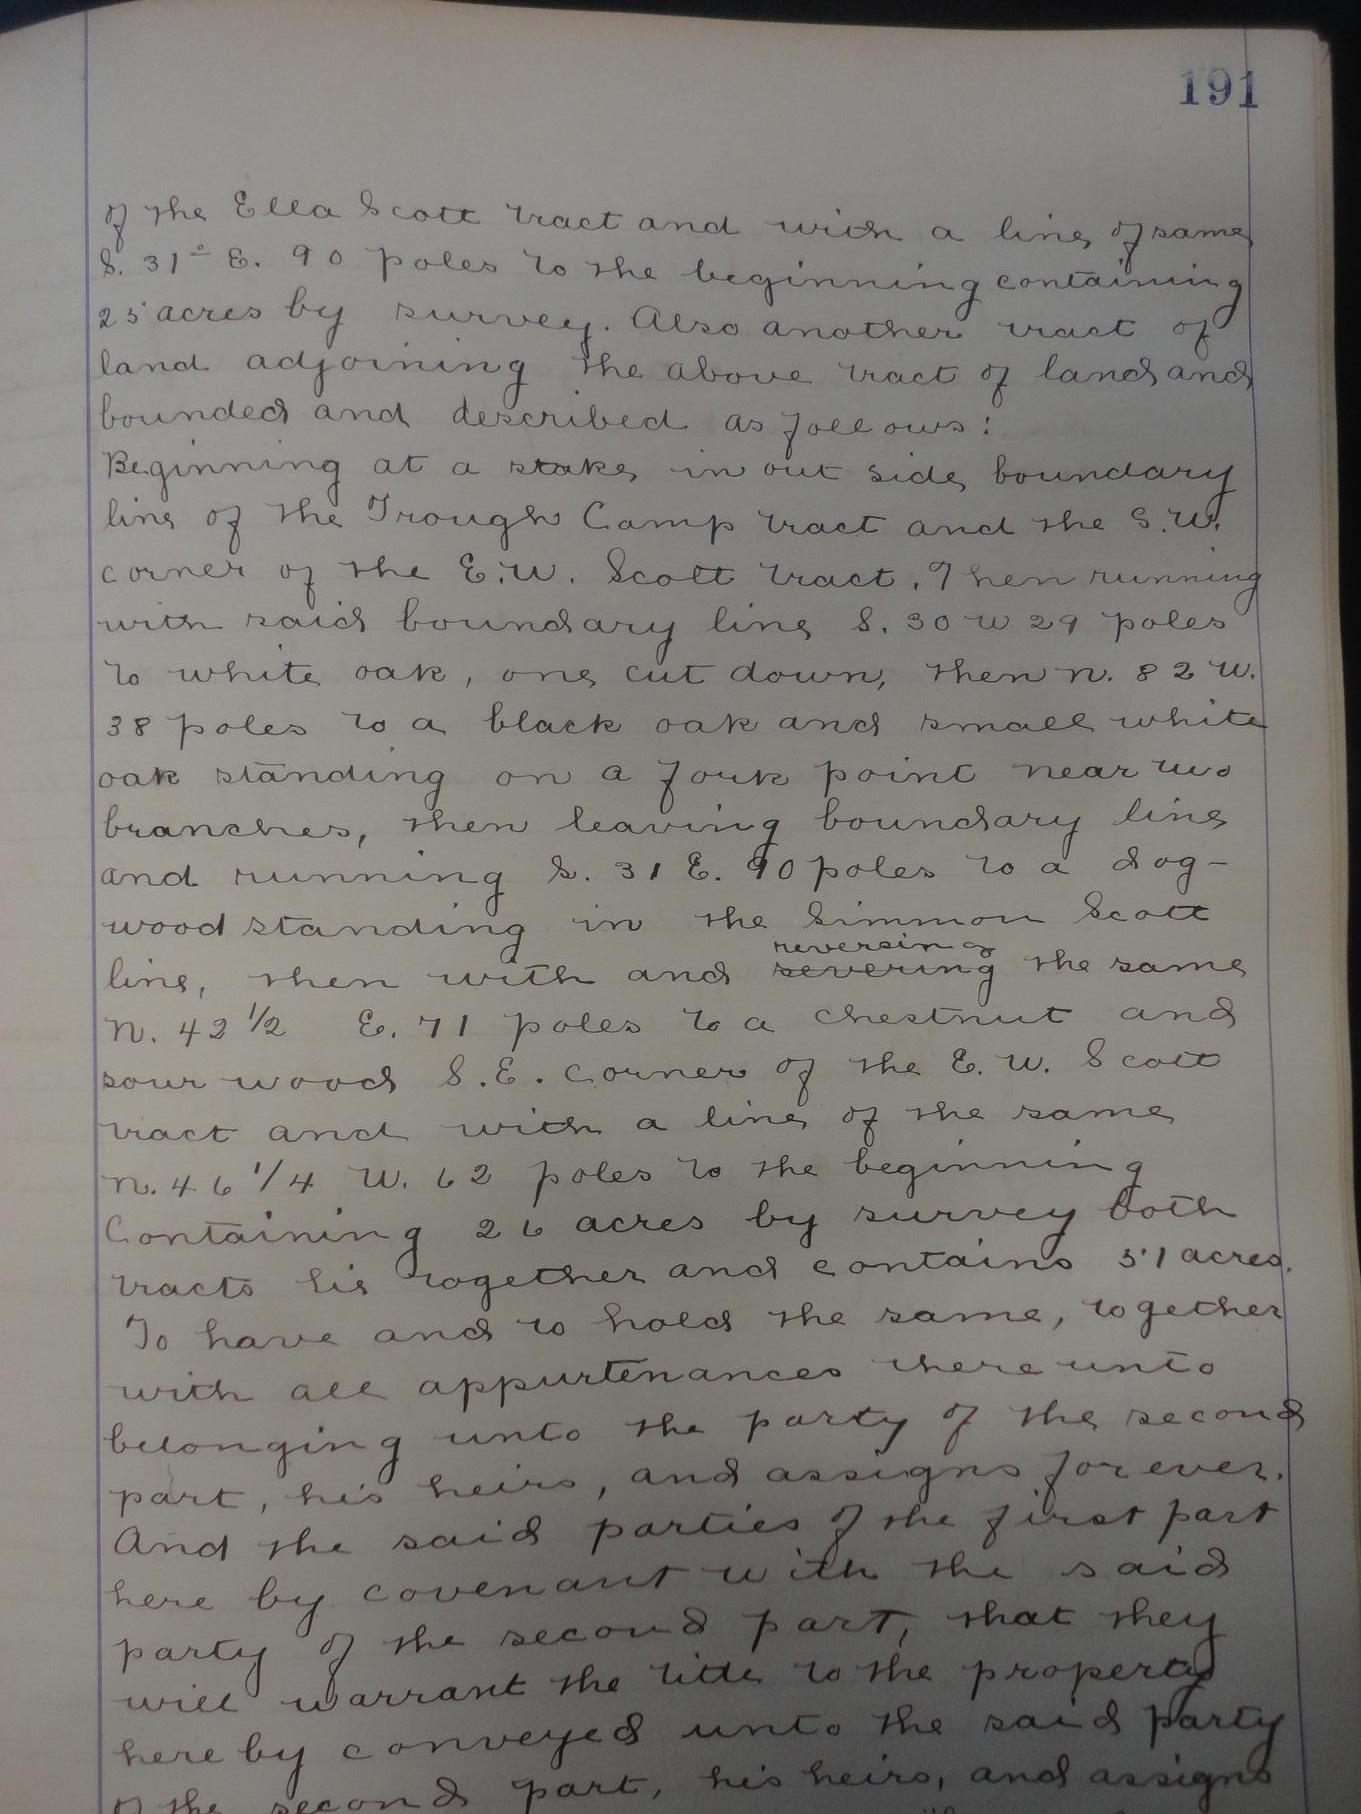 191
of the Ella Scott tract and with a line of same
S. 31° E. 90 poles to the beginning containing
25 acres by survey. Also another tract of
land adjoining the above tract of land and
bounded and described as follows:
Beginning at a stake in out side boundary
line of the Trough Camp tract and the S.W.
corner of the E.W. Scott tract. Then running
with said boundary line S. 30 W 29 poles
to white oak, one cut down, then N. 82 W.
38 poles to a black oak and small white
oak standing on a fork point near two
branches, then leaving boundary line
and running S. 31 E. 90 poles to a dog-
wood standing in the Simmon Scott
reversing
line, then with and severing the same
N. 42 1/2 E. 71 poles to a chestnut and
sour wood S.E. corner of the E. W. Scott
tract and with a line of the same
N. 46 1/4 W. 62 poles to the beginning
Containing 26 acres by survey both
tracts lie together and contains 51 acres.
To have and to hold the same, together
with all appurtenances there unto
belonging unto the party of the second
part, his heirs, and assigns forever.
And the said parties of the first part
here by covenant with the said
party of the second part, that they
will warrant the title to the property
here by conveyed unto the said party
of the second part, his heirs, and assigns